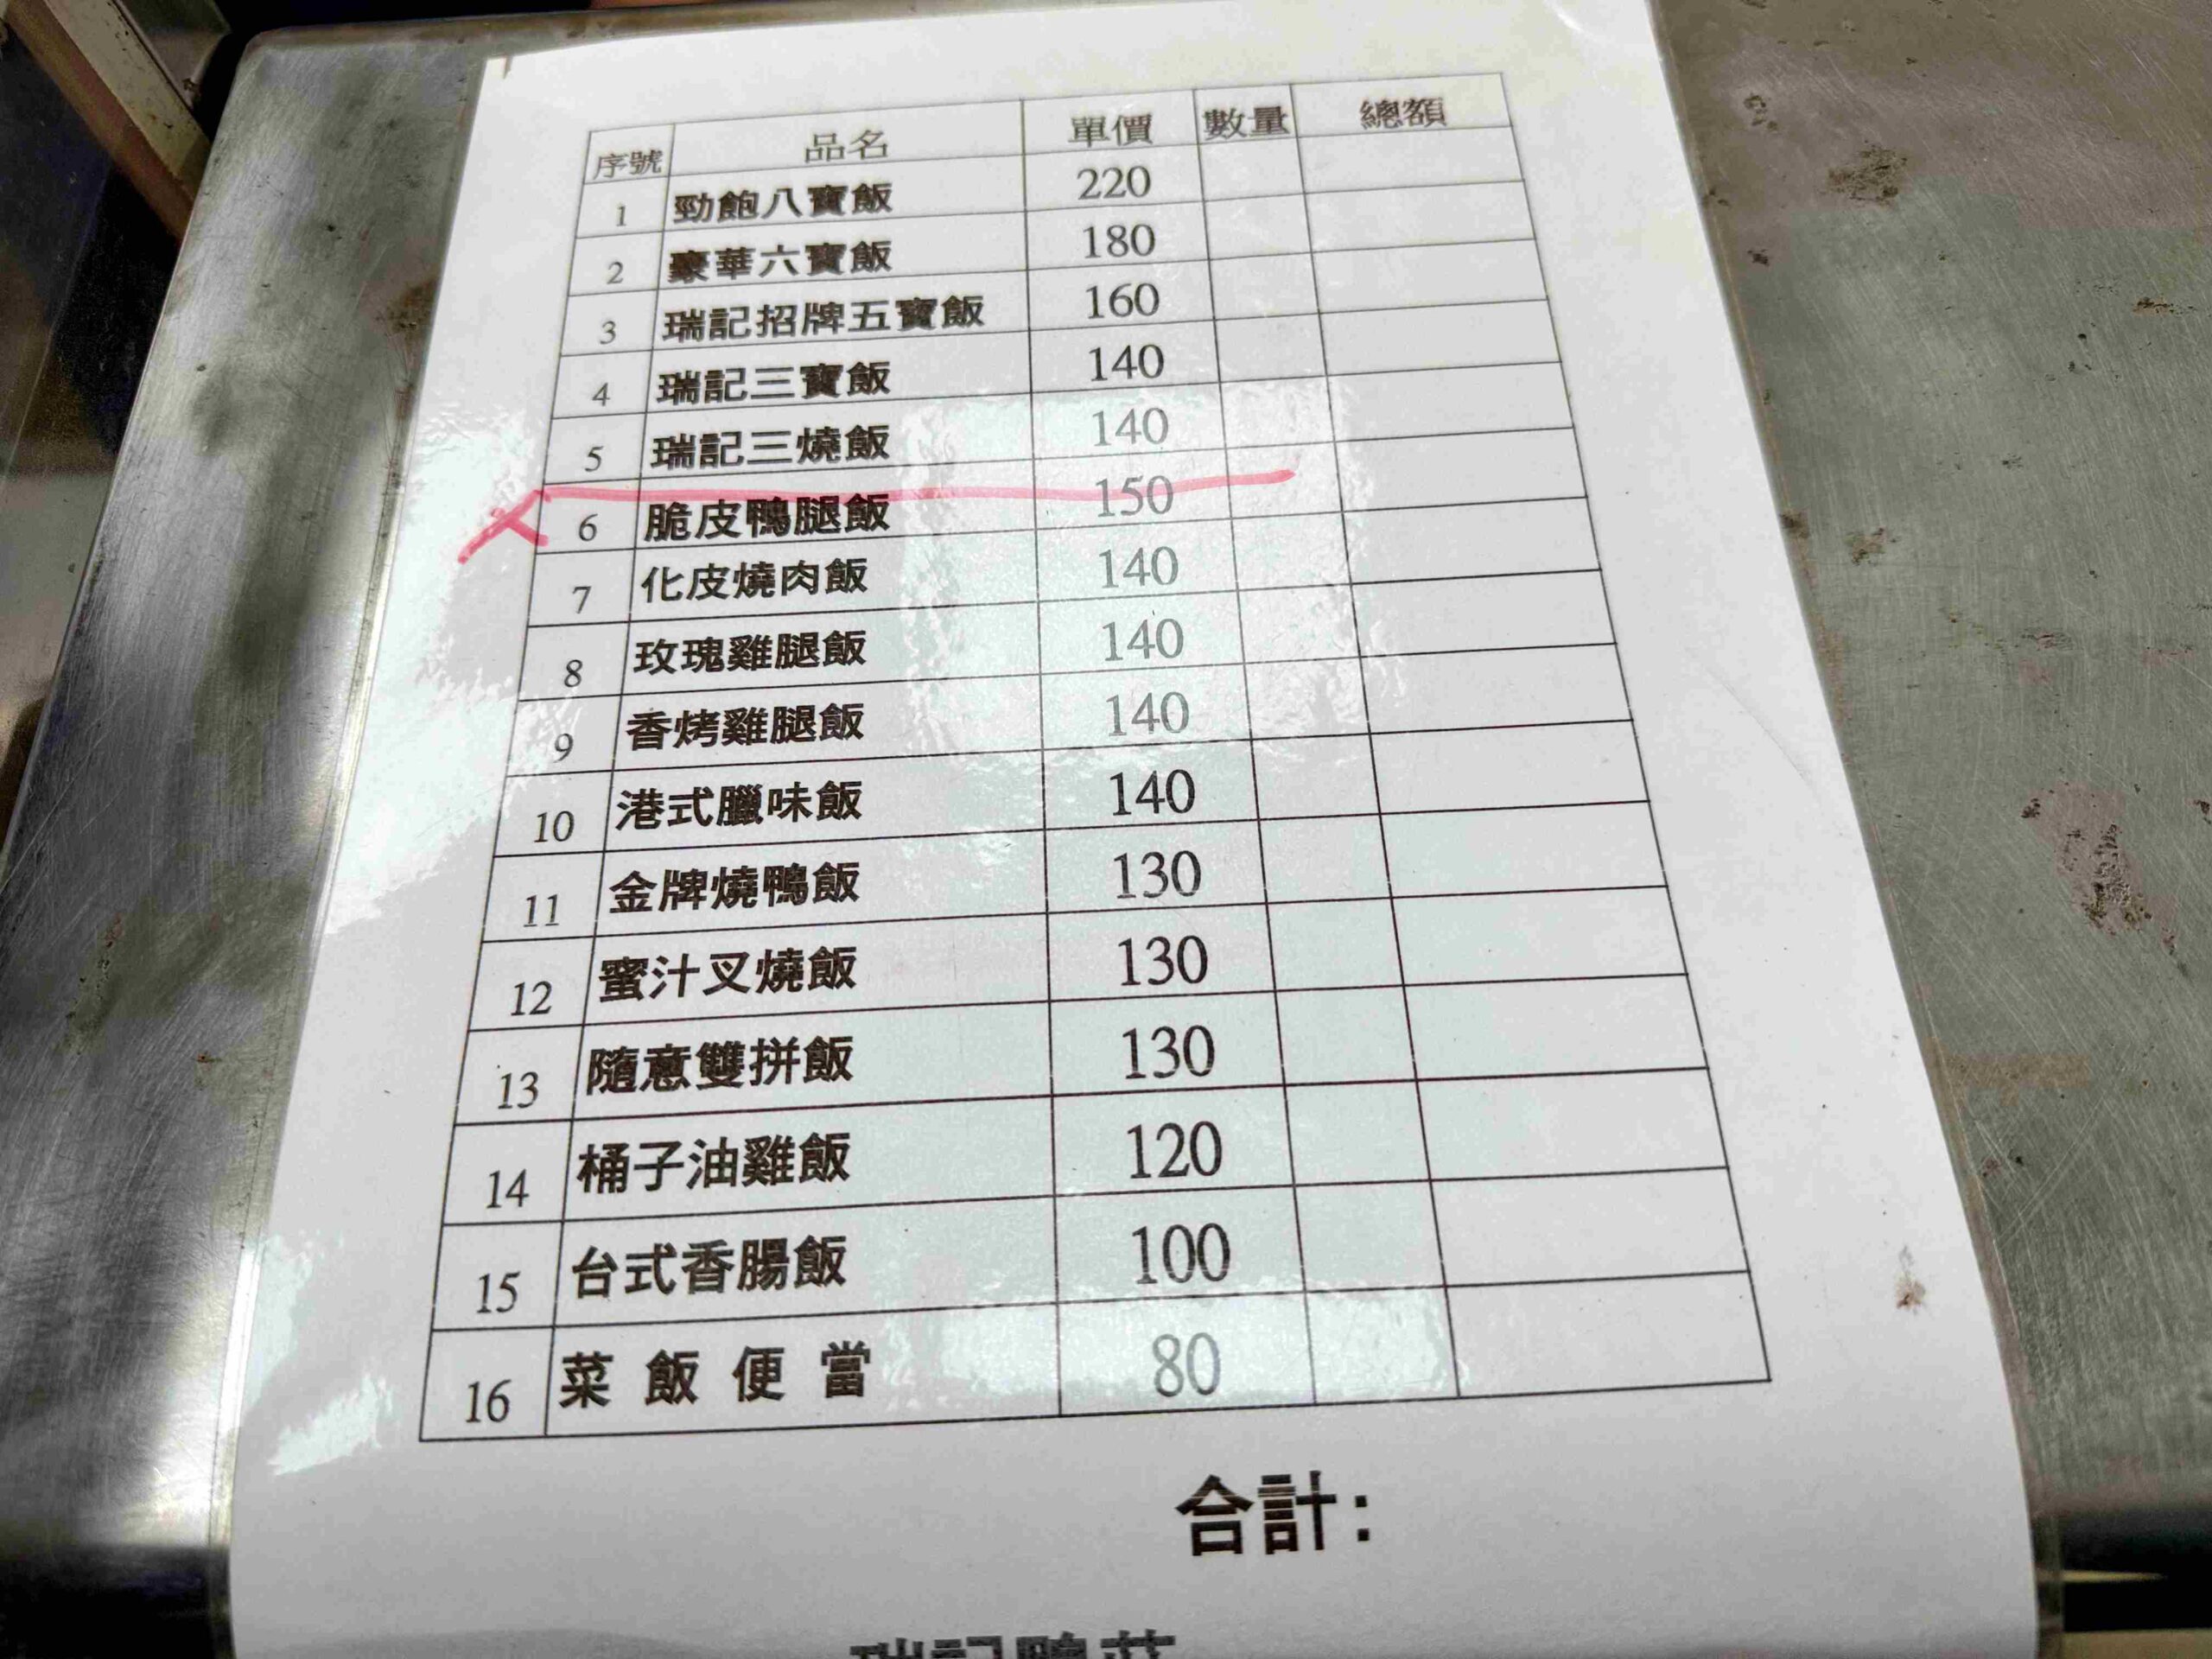 序號 品名 單價 數量 總額
1 勁飽八寶飯 220
2 豪華六寶飯 180
3 瑞記招牌五寶飯 160
4 瑞記三寶飯 140
5 瑞記三燒飯 140
6 脆皮鴨腿飯 150
7 化皮燒肉飯 140
8 玫瑰雞腿飯 140
9 香烤雞腿飯 140
10 港式臘味飯 140
11 金牌燒鴨飯 130
12 蜜汁叉燒飯 130
13 隨意雙拼飯 130
14 桶子油雞飯 120
15 台式香腸飯 100
16 菜飯便當 80
合計: